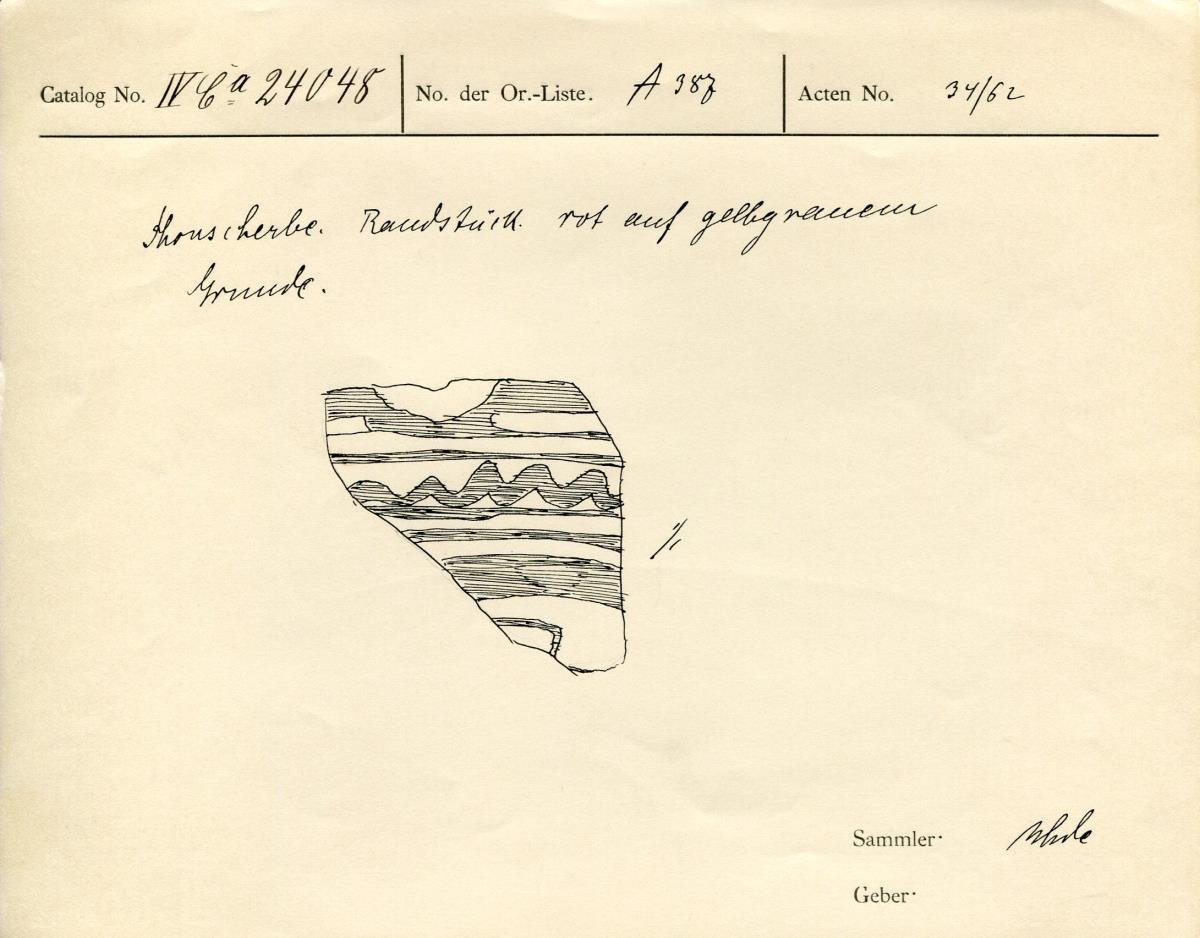 Catalog No. IV Ca 24048 No. der Or.-Liste. A 387 Acten No. 34/62
Thonscherbe. Randstück. rot auf gelbgrauem
Grunde.
1/1
Sammler· Uhde
Geber·